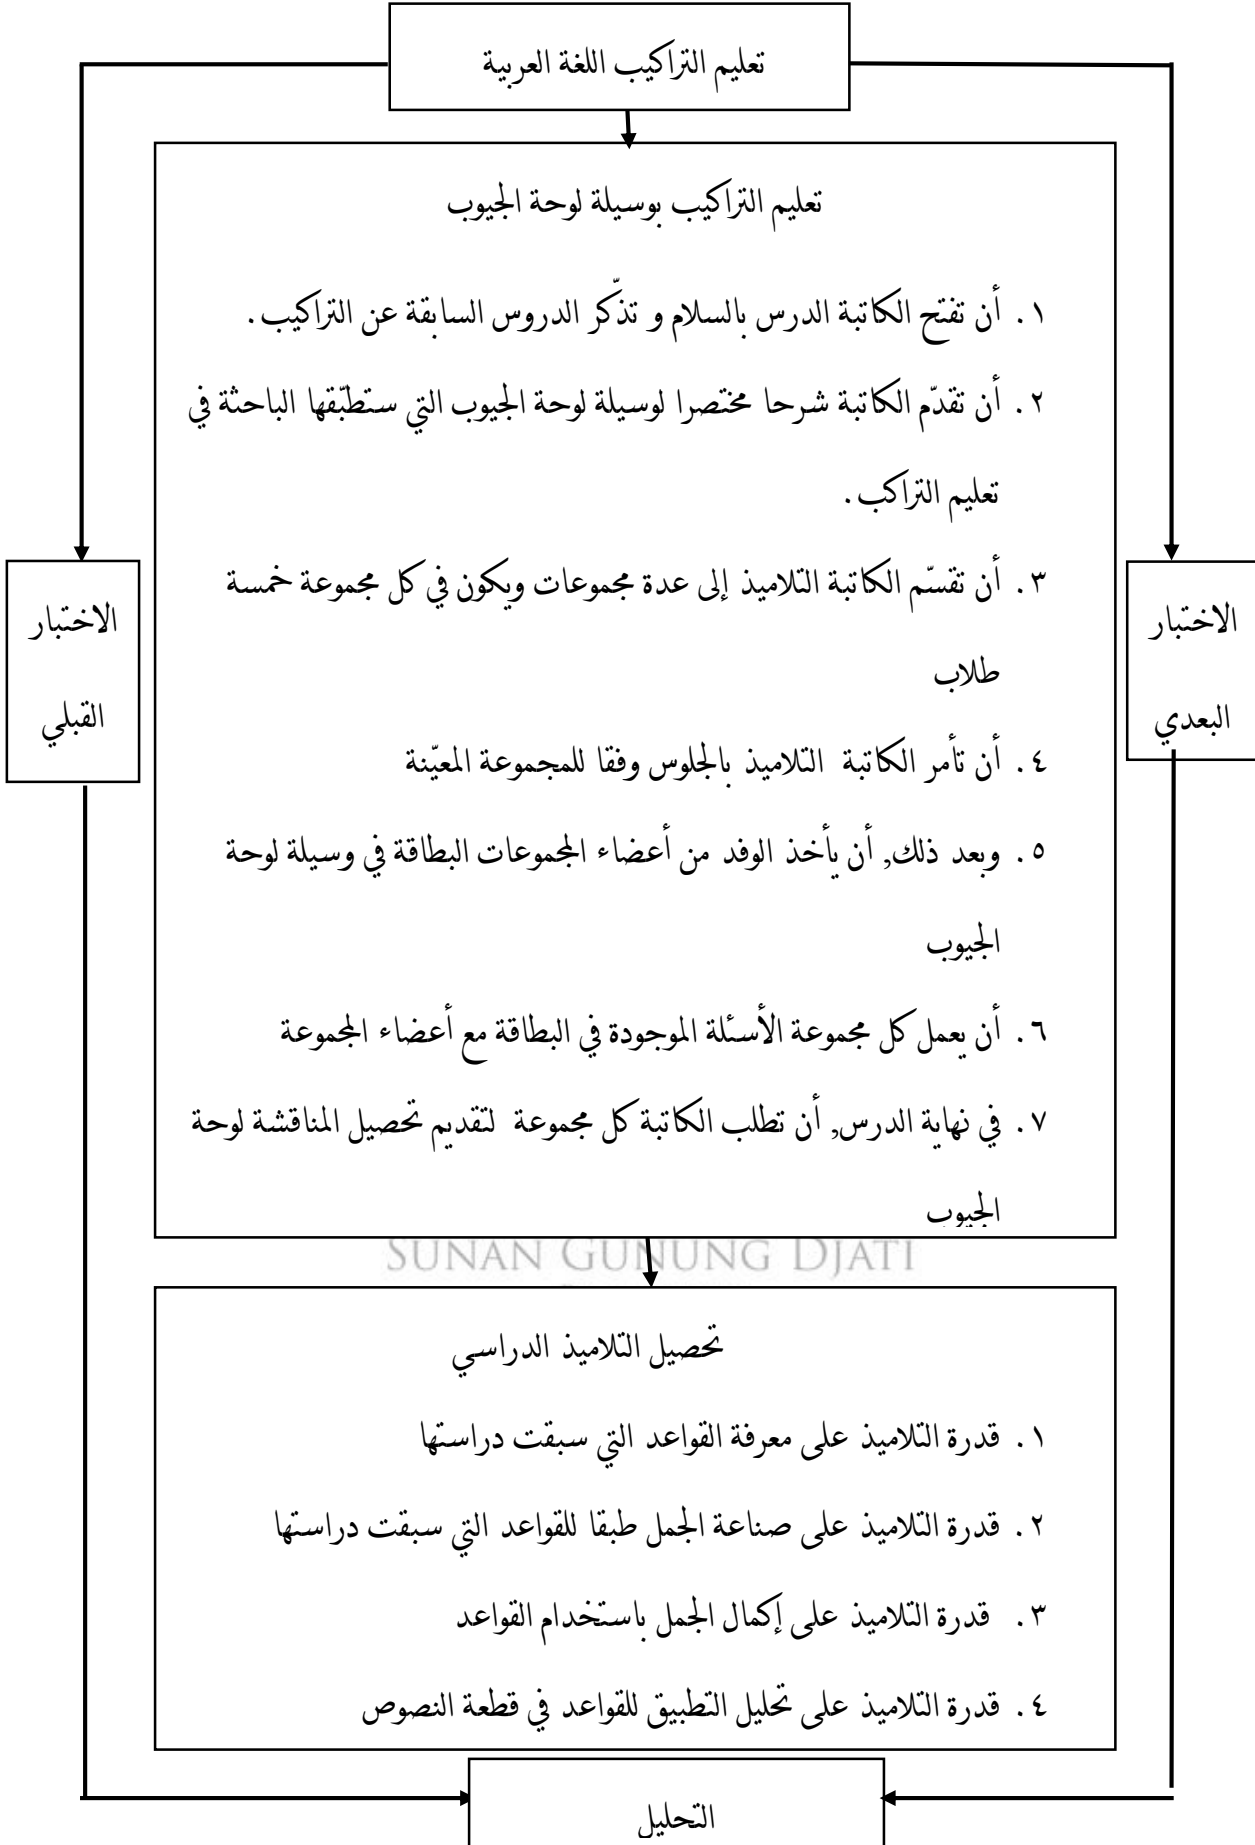 تعليم التراكيب اللغة العربية
تعليم التراكيب بوسيلة لوحة الجيوب
١. أن تفتح الكاتبة الدرس بالسلام و تذكّر الدروس السابقة عن التراكيب.
٢. أن تقدّم الكاتبة شرحا مختصرا لوسيلة لوحة الجيوب التي ستطبّقها الباحثة في
تعليم التراكب.
٣. أن تقسّم الكاتبة التلاميذ إلى عدة مجموعات ويكون في كل مجموعة خمسة
طلاب
٤. أن تأمر الكاتبة التلاميذ بالجلوس وفقا للمجموعة المعيّنة
٥. وبعد ذلك, أن يأخذ الوفد من أعضاء المجموعات البطاقة في وسيلة لوحة
الجيوب
٦. أن يعمل كل مجموعة الأسئلة الموجودة في البطاقة مع أعضاء المجموعة
٧. في نهاية الدرس, أن تطلب الكاتبة كل مجموعة لتقديم تحصيل المناقشة لوحة
الجيوب
الاختبار
البعدي
الاختبار
القبلي
SUNAN GUNUNG DJATI
تحصيل التلاميذ الدراسي
١. قدرة التلاميذ على معرفة القواعد التي سبقت دراستها
٢. قدرة التلاميذ على صناعة الجمل طبقا للقواعد التي سبقت دراستها
٣. قدرة التلاميذ على إكمال الجمل باستخدام القواعد
٤. قدرة التلاميذ على تحليل التطبيق للقواعد في قطعة النصوص
التحليل